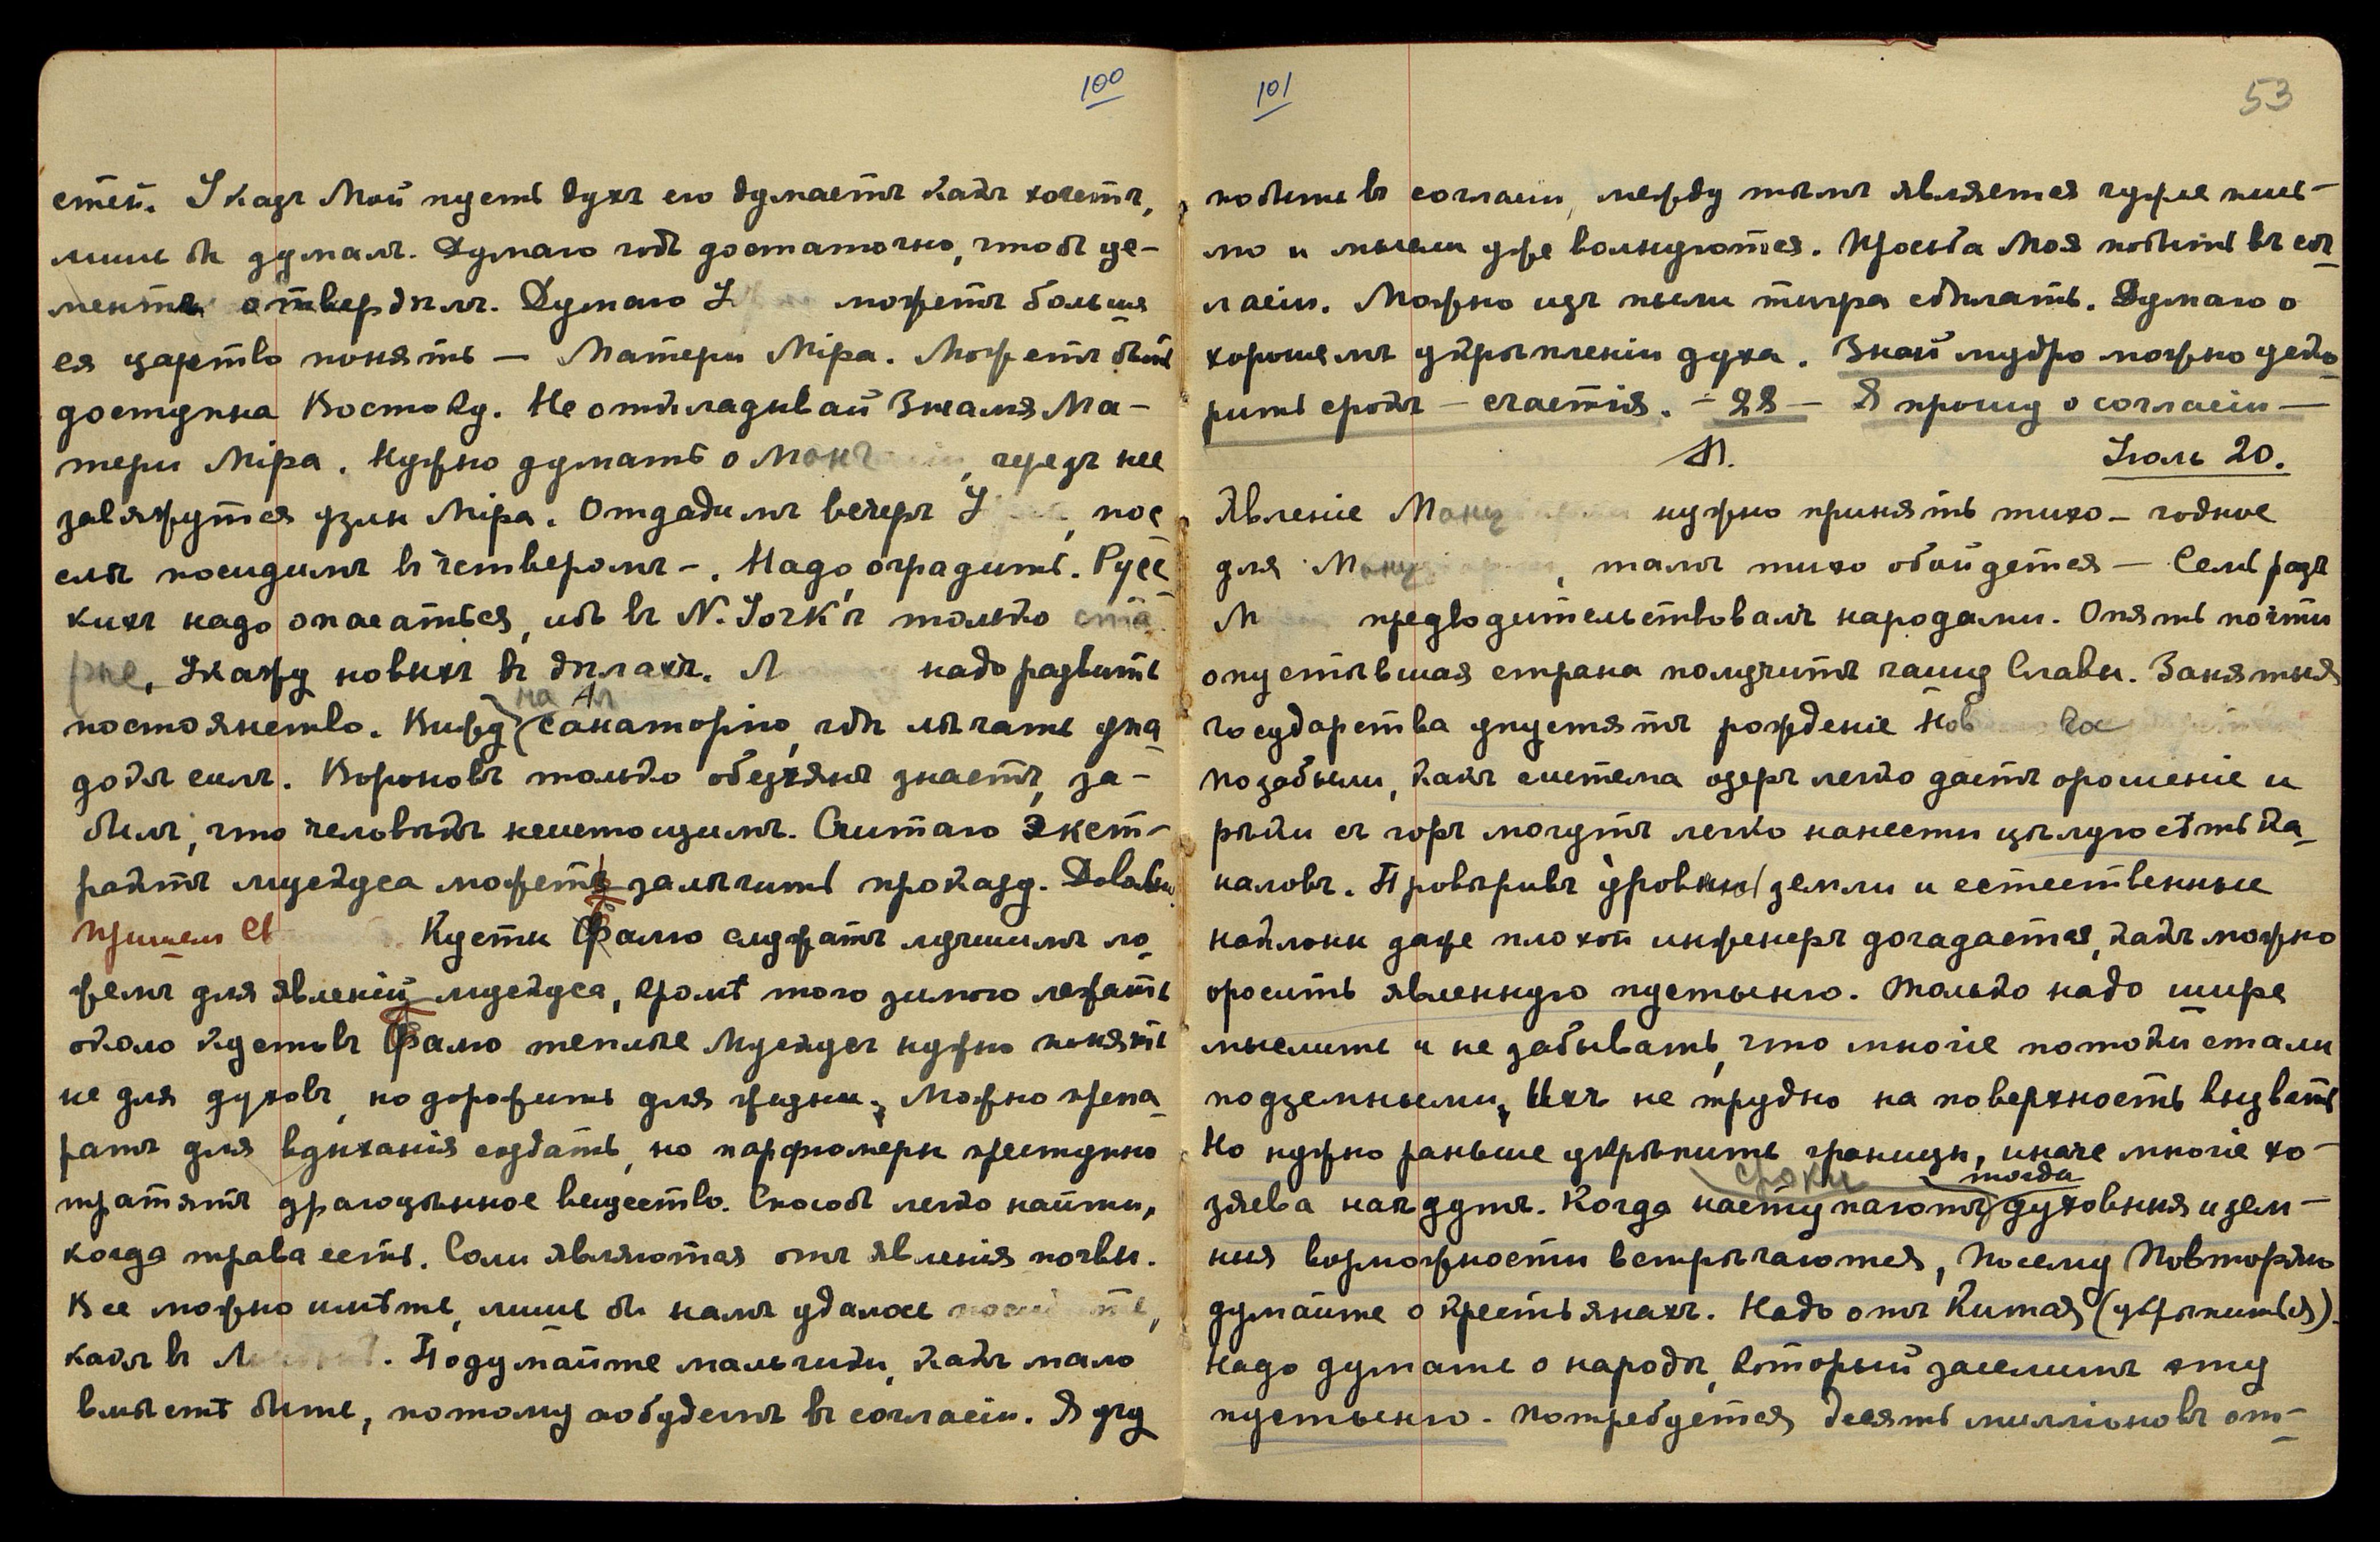 100
стей. Указъ Мой пусть духъ его думаетъ какъ хочетъ,
лишь бы думалъ. Думаю годъ достаточно, чтобъ це-
ментъ отвердѣлъ. Думаю можетъ больше
ея царство понять — Матери Міра. Можетъ быть
доступна Востоку. Не откладывай Знамя Ма-
тери Міра. Нужно думать о Монг , черезъ нее
завяжутся узлы Міра. Отдадимъ вечеръ У , пос
лѣ посидимъ въ четверомъ -. Надо оградить. Русс
кихъ надо опасаться, ибо въ N. Іоrк'ѣ только ста
рые. Укажу новыхъ въ дѣлахъ. Л надо развить
постоянство. Вижу на Ал
санаторію, гдѣ лѣчатъ упа
докъ силъ. Вороновъ только обезьянъ знаетъ, за-
былъ, что человѣкъ неистощимъ. Считаю Экст-
рактъ мускуса можетъ залѣчить проказу. Давлю
Пришелъ Кусты Фалю служатъ лучшимъ ло
жемъ для явленій мускуса, кромѣ того зимою лежать
около кустовъ Фалю теплѣе Мускусъ нужно понять
не для духовъ, но дорожить для жизни. Можно препа
ратъ для вдыханія создать, но парфюмеры преступно
тратятъ драгоцѣнное вещество. Способъ легко найти,
когда трава есть. Соли являются отъ явленія почвы.
Все можно имѣть, лишь бы намъ удалось
какъ въ Л . Подумайте мальчики, какъ мало
вмѣстѣ быть, потому побудемъ въ согласіи. Я учу
101
53
побыть въ согласіи, между тѣмъ является чужое пись-
мо и мысли уже волнуются. Просьба Моя побыть въ сог
ласіи. Можно изъ пыли тигра сдѣлать. Думаю о
хорошемъ укрѣпленіи духа. Знай мудро можно уско
рить срокъ — счастія. - 28 — Я прошу о согласіи —
Іюль 20.
Явленіе Монг нужно принять тихо - годное
для М , тамъ тихо обойдется — Семь разъ
М предводительствовалъ народами. Опять почти
опустѣвшая страна получитъ чашу Славы. Занятыя
государства упустятъ рожденіе Нов Гос
Позабыли, какъ система озеръ легко дастъ орошеніе и
рѣки съ горъ могутъ легко нанести цѣлую сѣть ка
наловъ. Провѣривъ уровни земли и естественные
наклоны даже плохой инженеръ догадается, какъ можно
оросить явленную пустыню. Только надо шире
мыслить и не забывать, что многіе потоки стали
подземными. Ихъ не трудно на поверхность вызвать
Но нужно раньше укрѣпить границы, иначе многіе хо-
зяева найдутъ. Когда наступаютъ сроки тогда духовныя и зем-
ныя возможности встрѣчаются, Посему Повторяю
думайте о крестьянахъ. Надо отъ Китая (укрѣпиться).
Надо думать о народѣ, который заселитъ эту
пустыню. Потребуется десять милліоновъ от-